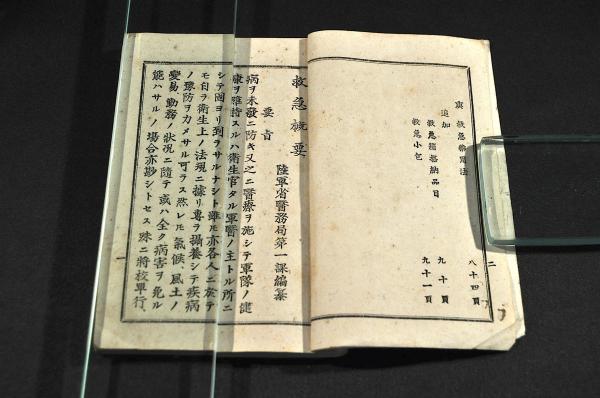 寅 救急𛀁療法 八十四頁
追加
救急箱格納品目 九十頁
救急小包 九十一頁
二
救急概要
陸軍省醫務局第一課編纂
要旨
病ヲ未發ニ防キ又之ニ醫療ヲ施シテ軍隊ノ健
康ヲ維持スルハ衛生官タル軍醫ノ主トル所ニ
シテ固ヨリ到ラサルナシト雖モ亦各人ニ於テ
モ自ラ衛生上ノ法規ニ據リ專ラ攝養シテ疾病
ノ豫防ヲカメサル可ラス然レモ氣候、風土ノ
變易、勤務ノ狀況ニ隨テ或ハ全ク病害ヲ免ル
能ハサルノ場合亦尠シトセス殊ニ將校單行、
一